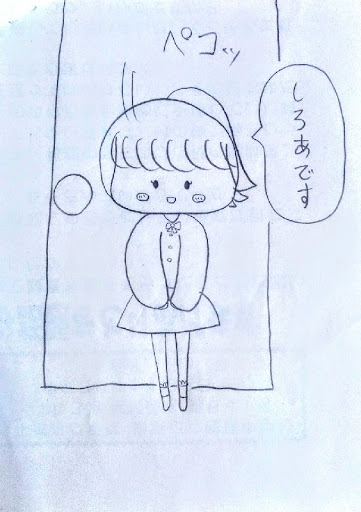 ペコッ
しろあです